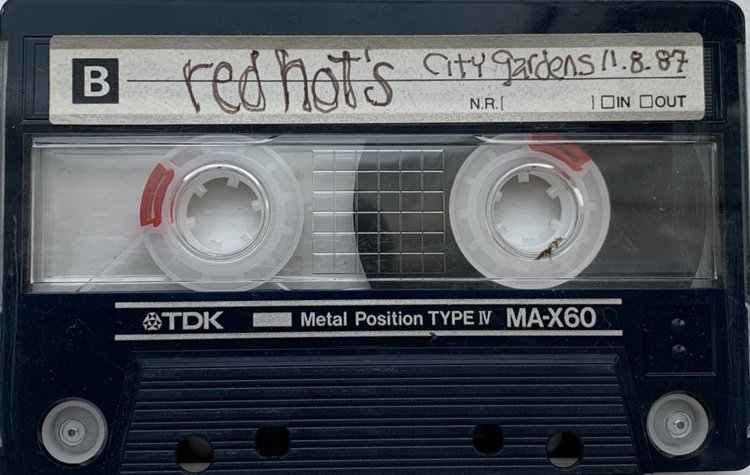 B red hot's City gardens 11.8.87
N.R.[ ] IN OUT
TDK Metal Position TYPE IV MA-X60